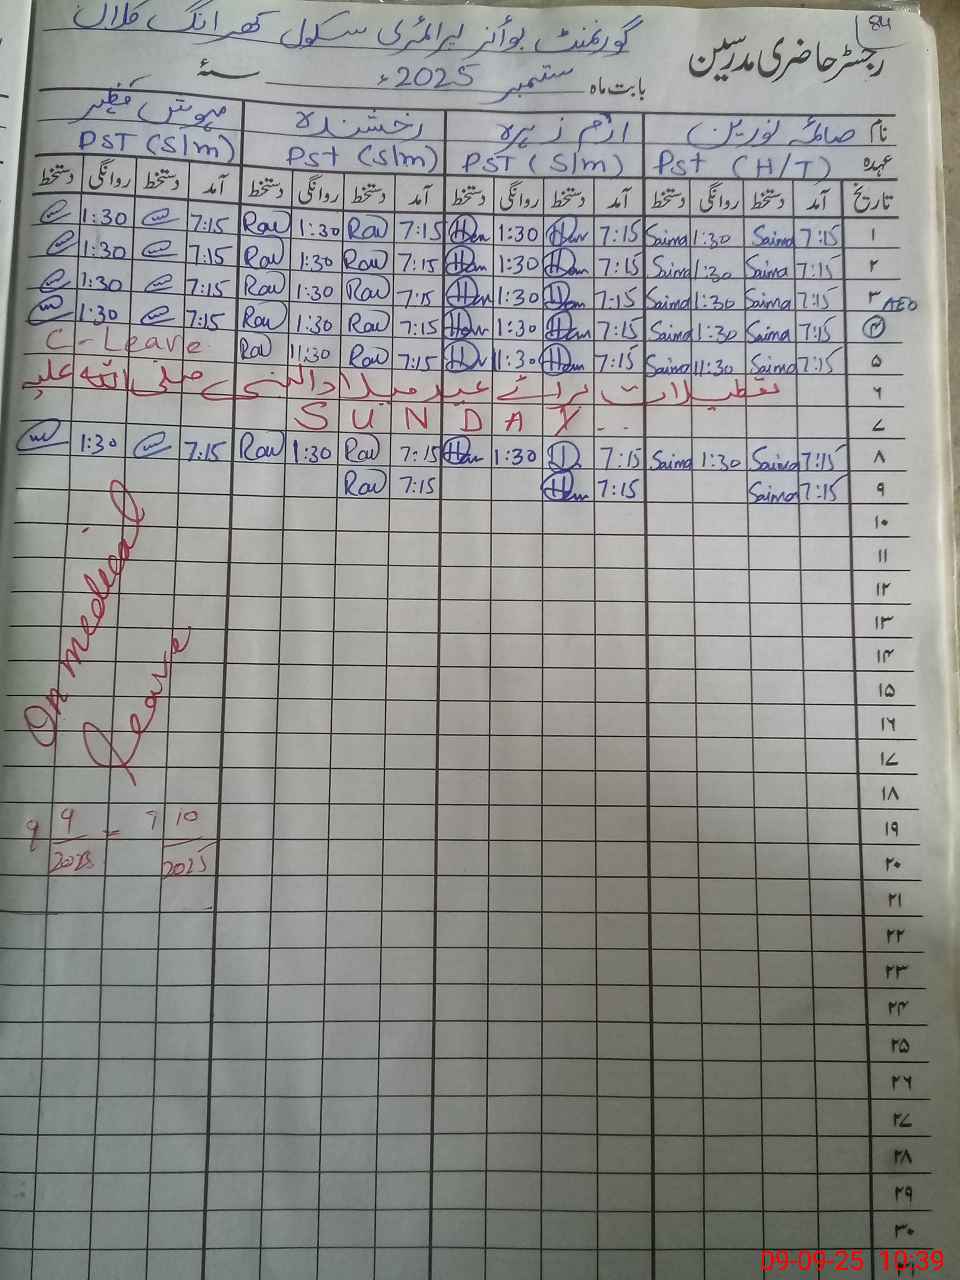 84
رجسٹر حاضری مدرسین
گورنمنٹ بوائز پرائمری سکول کلاں
بابت ماہ ستمبر 2025ء سنہ
نام صائمہ نورین ارم زہرہ رخشندہ مہوش
عہدہ Pst (H/T) PST (S/m) Pst (S/m) PST (S/m)
تاریخ آمد دستخط روانگی دستخط آمد دستخط روانگی دستخط آمد دستخط روانگی دستخط آمد دستخط روانگی دستخط
۱ 7:15 Saima 1:30 Saima 7:15 1:30 7:15 Rau 1:30 Rau 7:15 1:30
۲ 7:15 Saima 1:30 Saima 7:15 1:30 7:15 Rau 1:30 Rau 7:15 1:30
۳ AEO 7:15 Saima 1:30 Saima 7:15 1:30 7:15 Rau 1:30 Rau 7:15 1:30
۴ 7:15 Saima 1:30 Saima 7:15 1:30 7:15 Rau 1:30 Rau 7:15 1:30
۵ 7:15 Saima 11:30 Saima 7:15 11:30 7:15 Rau 11:30 Rau C-Leave
۶ تعطیلات برائے عید میلادالنبی صلی اللہ علیہ
۷ SUNDAY
۸ 7:15 Saima 1:30 Saima 7:15 1:30 7:15 Rau 1:30 Rau 7:15 1:30
۹ 7:15 Saima 7:15 7:15 Rau
On medical
leave
9 9/2025 = 7 10/2025
۱۰
۱۱
۱۲
۱۳
۱۴
۱۵
۱۶
۱۷
۱۸
۱۹
۲۰
۲۱
۲۲
۲۳
۲۴
۲۵
۲۶
۲۷
۲۸
۲۹
۳۰
09-09-25 10:39